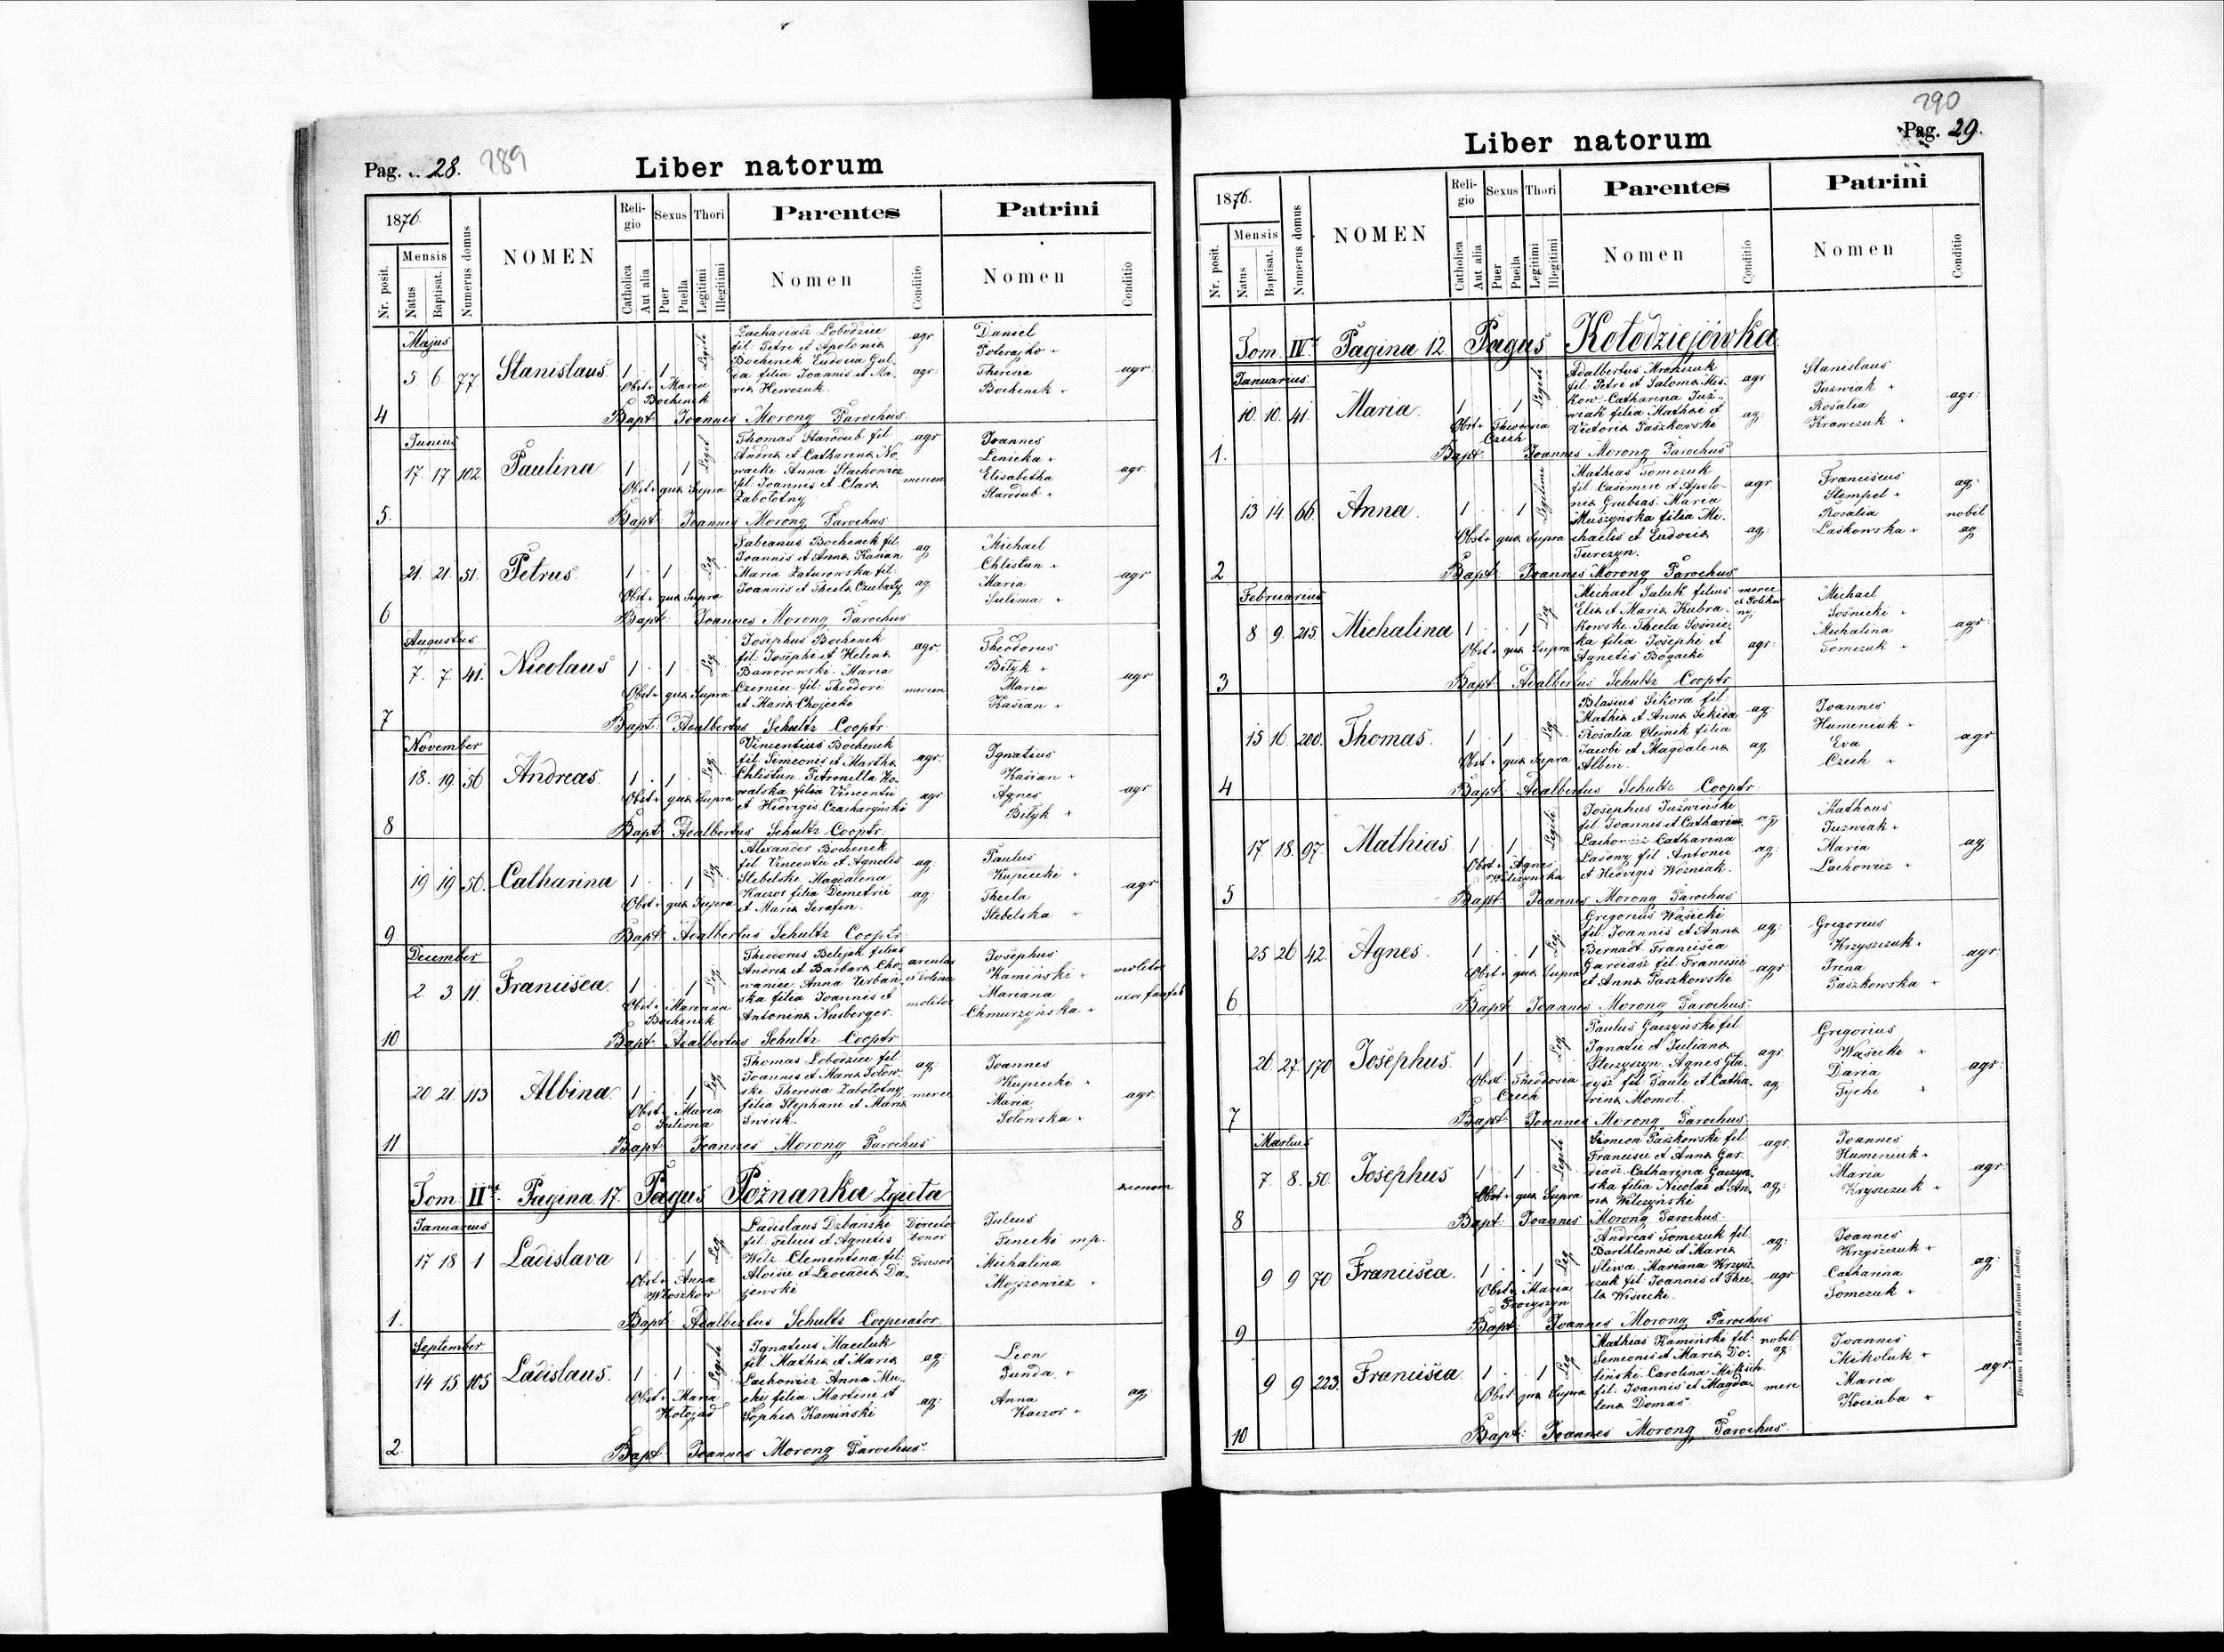 Pag. 28. 289
Liber natorum
1876.
Nr. posit.
Mensis
Natus
Baptisat.
Numerus domus
NOMEN
Religio
Catholica
Aut alia
Sexus
Puer
Puella
Thori
Legitimi
Illegitimi
Parentes
Nomen
Conditio
Patrini
Nomen
Conditio
Majus
4 5 6 77 Stanislaus 1 1
Zachariasz Lobodzice agr
fil: Petri et Apolonia
Bochenek Eudocia Gul-
da filia Joannis et Ma- agr:
ria Hewczuk.
Daniel
Poterajko
Theresia agr.
Bochenek
Obst. Maria
Bochenek
Bapt: Joannes Morong Parochus.
Junius
5. 17 17 102 Paulina 1 1
Thomas Starodub fil. agr
Andrea et Catharina No
wacki Anna Stachowicz
fil. Joannis et Clara mercen
Zabolotny
Joannes
Lenicka
Elisabetha agr.
Starodub
Obst. qua Supra
Bapt: Joannes Morong Parochus
6 21. 21. 51. Petrus 1 1 Leg
Fabianus Bochenek fil. ag
Joannis et Anna Kasian
Maria Zaturowska fil.
Joannis et Thecla Czubaty ag
Michael
Chlistun
Maria agr
Sulima
Obst. qua Supra
Bapt: Joannes Morong Parochus
Augustus
7 7. 7 41. Nicolaus 1 1 Leg
Josephus Bochenek agr.
fil: Josephi et Helena
Baworowski. Maria
Czernice fil: Theodori mercen
et Maria Chojecki
Theodorus
Bityk
Maria agr
Kasian
Obst. qua Supra
Bapt: Adalbertus Schultz Cooptr.
November
8 18. 19. 56 Andreas 1 1 Leg
Vincentius Bochenek agr.
fil. Simeonis et Martha
Chlistun. Petronella Ko-
walska filia Vincentii agr
et Hedvigis Czacharzynski
Ignatius
Kasian
Agnes agr
Bityk
Obst. qua Supra
Bapt: Adalbertus Schultz Cooptr.
9 19 19 56. Catharina 1 1 Leg
Alexander Bochenek
fil. Vincentii et Agnetis ag.
Stebelski. Magdalena
Kaczor filia Demetrii ag:
et Maria Serafin.
Paulus
Kupiecki
Thecla agr
Stebelska
Obst. qua Supra
Bapt: Adalbertus Schultz Cooptr.
December
10 2 3 11. Francisca 1 1 Leg
Theodorus Belejak filius
Andrea et Barbara Cho-
waniec. Anna Urban- ex Dolina
ska filia Joannis et molitor
Antonina Nusberger.
Josephus
Kaminski molitor
Mariana
Chmurzynska
Obst. Mariana
Bochenek
Bapt: Adalbertus Schultz Cooptr
11 20 21 113 Albina 1 1 Leg
Thomas Lobodzice fil. ag.
Joannis et Maria Sotow-
ski Theresia Zabolotny merce
filia Stephani et Maria
Swirsk.
Joannes
Kupiecki
Maria agr.
Sotowska
Obst. Maria
Sulima
Bapt: Joannes Morong Parochus
Tom: II. Pagina 17. Pagus Poznanka Zgieta
Januarius
1. 17 18 1 Ladislava 1 1 Leg
Ladislaus Dzbanski
fil. Felicis et Agnetis bonor
Welz. Clementina fil.
Aloisii et Leocadia Da-
jewski
Julius econom
Finecki mp.
Michalina
Mojzowicz
Obst. Anna
Bapt: Adalbertus Schultz Cooperator.
September
2. 14 15 105 Ladislaus. 1 1
Ignatius Maciluk
fil. Mathia et Maria ag:
Lachowicz Anna Mu-
chy filia Martini et ag:
Sophia Kaminski
Leon
Punda
Anna ag.
Kaczor
Obst. Maria
Hotojad
Bapt: Joannes Morong Parochus.
290
Pag. 29.
Liber natorum
1876.
Nr. posit.
Mensis
Natus
Baptisat.
Numerus domus
NOMEN
Religio
Catholica
Aut alia
Sexus
Puer
Puella
Thori
Legitimi
Illegitimi
Parentes
Nomen
Conditio
Patrini
Nomen
Conditio
Tom. IV. Pagina 12 Pagus Kołodziejówka
Januarius
1. 10. 10. 41. Maria 1 1
Adalbertus Mrohczuk
fil: Petri et Saloma Mis- agr
kow. Catharina Juz-
wiak filia Mathaei et ag:
Victoria Paszkowski
Stanislaus
Juzwiak
Rosalia agr:
Krawczuk
Obst. Theodosia
Czech
Bapt: Joannes Morong Parochus
2 13 14 66. Anna. 1 1 Legitimi
Mathias Tomczuk
fil. Casimiri et Apolo- agr.
nia Grubias. Maria
Muszynska filia Mi-
chaelis et Eudocia ag:
Turczyn.
Franciscus ag:
Stempel
Rosalia nobil
Laskowska ag
Obst. qua Supra
Bapt: Joannes Morong Parochus
Februarius
3 8 9. 215 Michalina 1 1 Leg
Michael Saluk filius merce
Elia et Maria Kubra-
kowski. Thecla Sosnic-
ka filia Josephi et agr:
Agnetis Bogacki
Michael
Sosnicki
Michalina agr
Tomczuk
Obst. qua Supra
Bapt: Adalbertus Schultz Cooptr
4 15 16. 200. Thomas. 1 1 Leg
Blasius Sikora fil: ag:
Mathia et Anna Sekida
Rosalia Olejnik filia
Jacobi et Magdalena ag
Albin.
Joannes
Humeniuk
Eva agr
Czech
Obst. qua Supra
Bapt: Adalbertus Schultz Cooptr
5 17 18. 97. Mathias 1 1
Josephus Juzwinski
fil. Joannis et Catharina ag
Lachowicz Catharina
Lasowy fil Antonii ag:
et Hedvigis Wozniak.
Mathaus
Juzwiak
Maria ag
Lachowicz
Obst. Agnes
Wilczynska
Bapt: Joannes Morong Parochus
6 25 26 42. Agnes 1 1 Leg
Gregorius Wasicki
fil. Joannis et Anna ag:
Bernadt. Francisca
Gardiasz fil. Francisci agr
et Anna Paszkowski
Gregorius
Krzyszczuk
Irena agr
Paszkowska
Obst. qua Supra
Bapt: Joannes Morong Parochus.
7 26 27. 170 Josephus. 1 1 Leg
Paulus Gaczynski fil
Ignatii et Juliana agr.
Sterzyszyn. Agnes Gla-
dysz fil. Pauli et Catha- ag.
rina Momot.
Gregorius
Wasicki
Daria agr.
Tychi
Obst. Theodosia
Czech
Bapt: Joannes Morong Parochus.
Martius
8 7. 8. 50 Josephus 1 1
Simeon Paszkowski fil agr.
Francisci et Anna Gar-
diasz. Catharina Gaczyn-
ska filia Nicolai et An- ag:
na Wilczynski
Joannes
Humeniuk
Maria agr
Kryszczuk
Obst. qua Supra
Bapt: Joannes Morong Parochus.
9 9 9 70 Francisca. 1 1 Leg
Andreas Tomczuk fil. ag:
Barthlomai et Maria
Sliwa. Mariana Krzysz-
czuk fil. Joannis et Thec- agr
la Wisucki.
Joannes
Krzyszczuk
Catharina ag:
Tomczuk
Obst. Maria
Bapt: Joannes Morong Parochus
10 9 9 223. Francisca 1 1 Leg
Mathias Kaminski fil: nobil
Semeonis et Maria Do- ag:
linski. Carolina Miksch
fil. Joannis et Magda- merc
lena Domas
Joannes
Mikoluk
Maria agr
Kociuba
Obst qua Supra
Bapt: Joannes Morong Parochus.